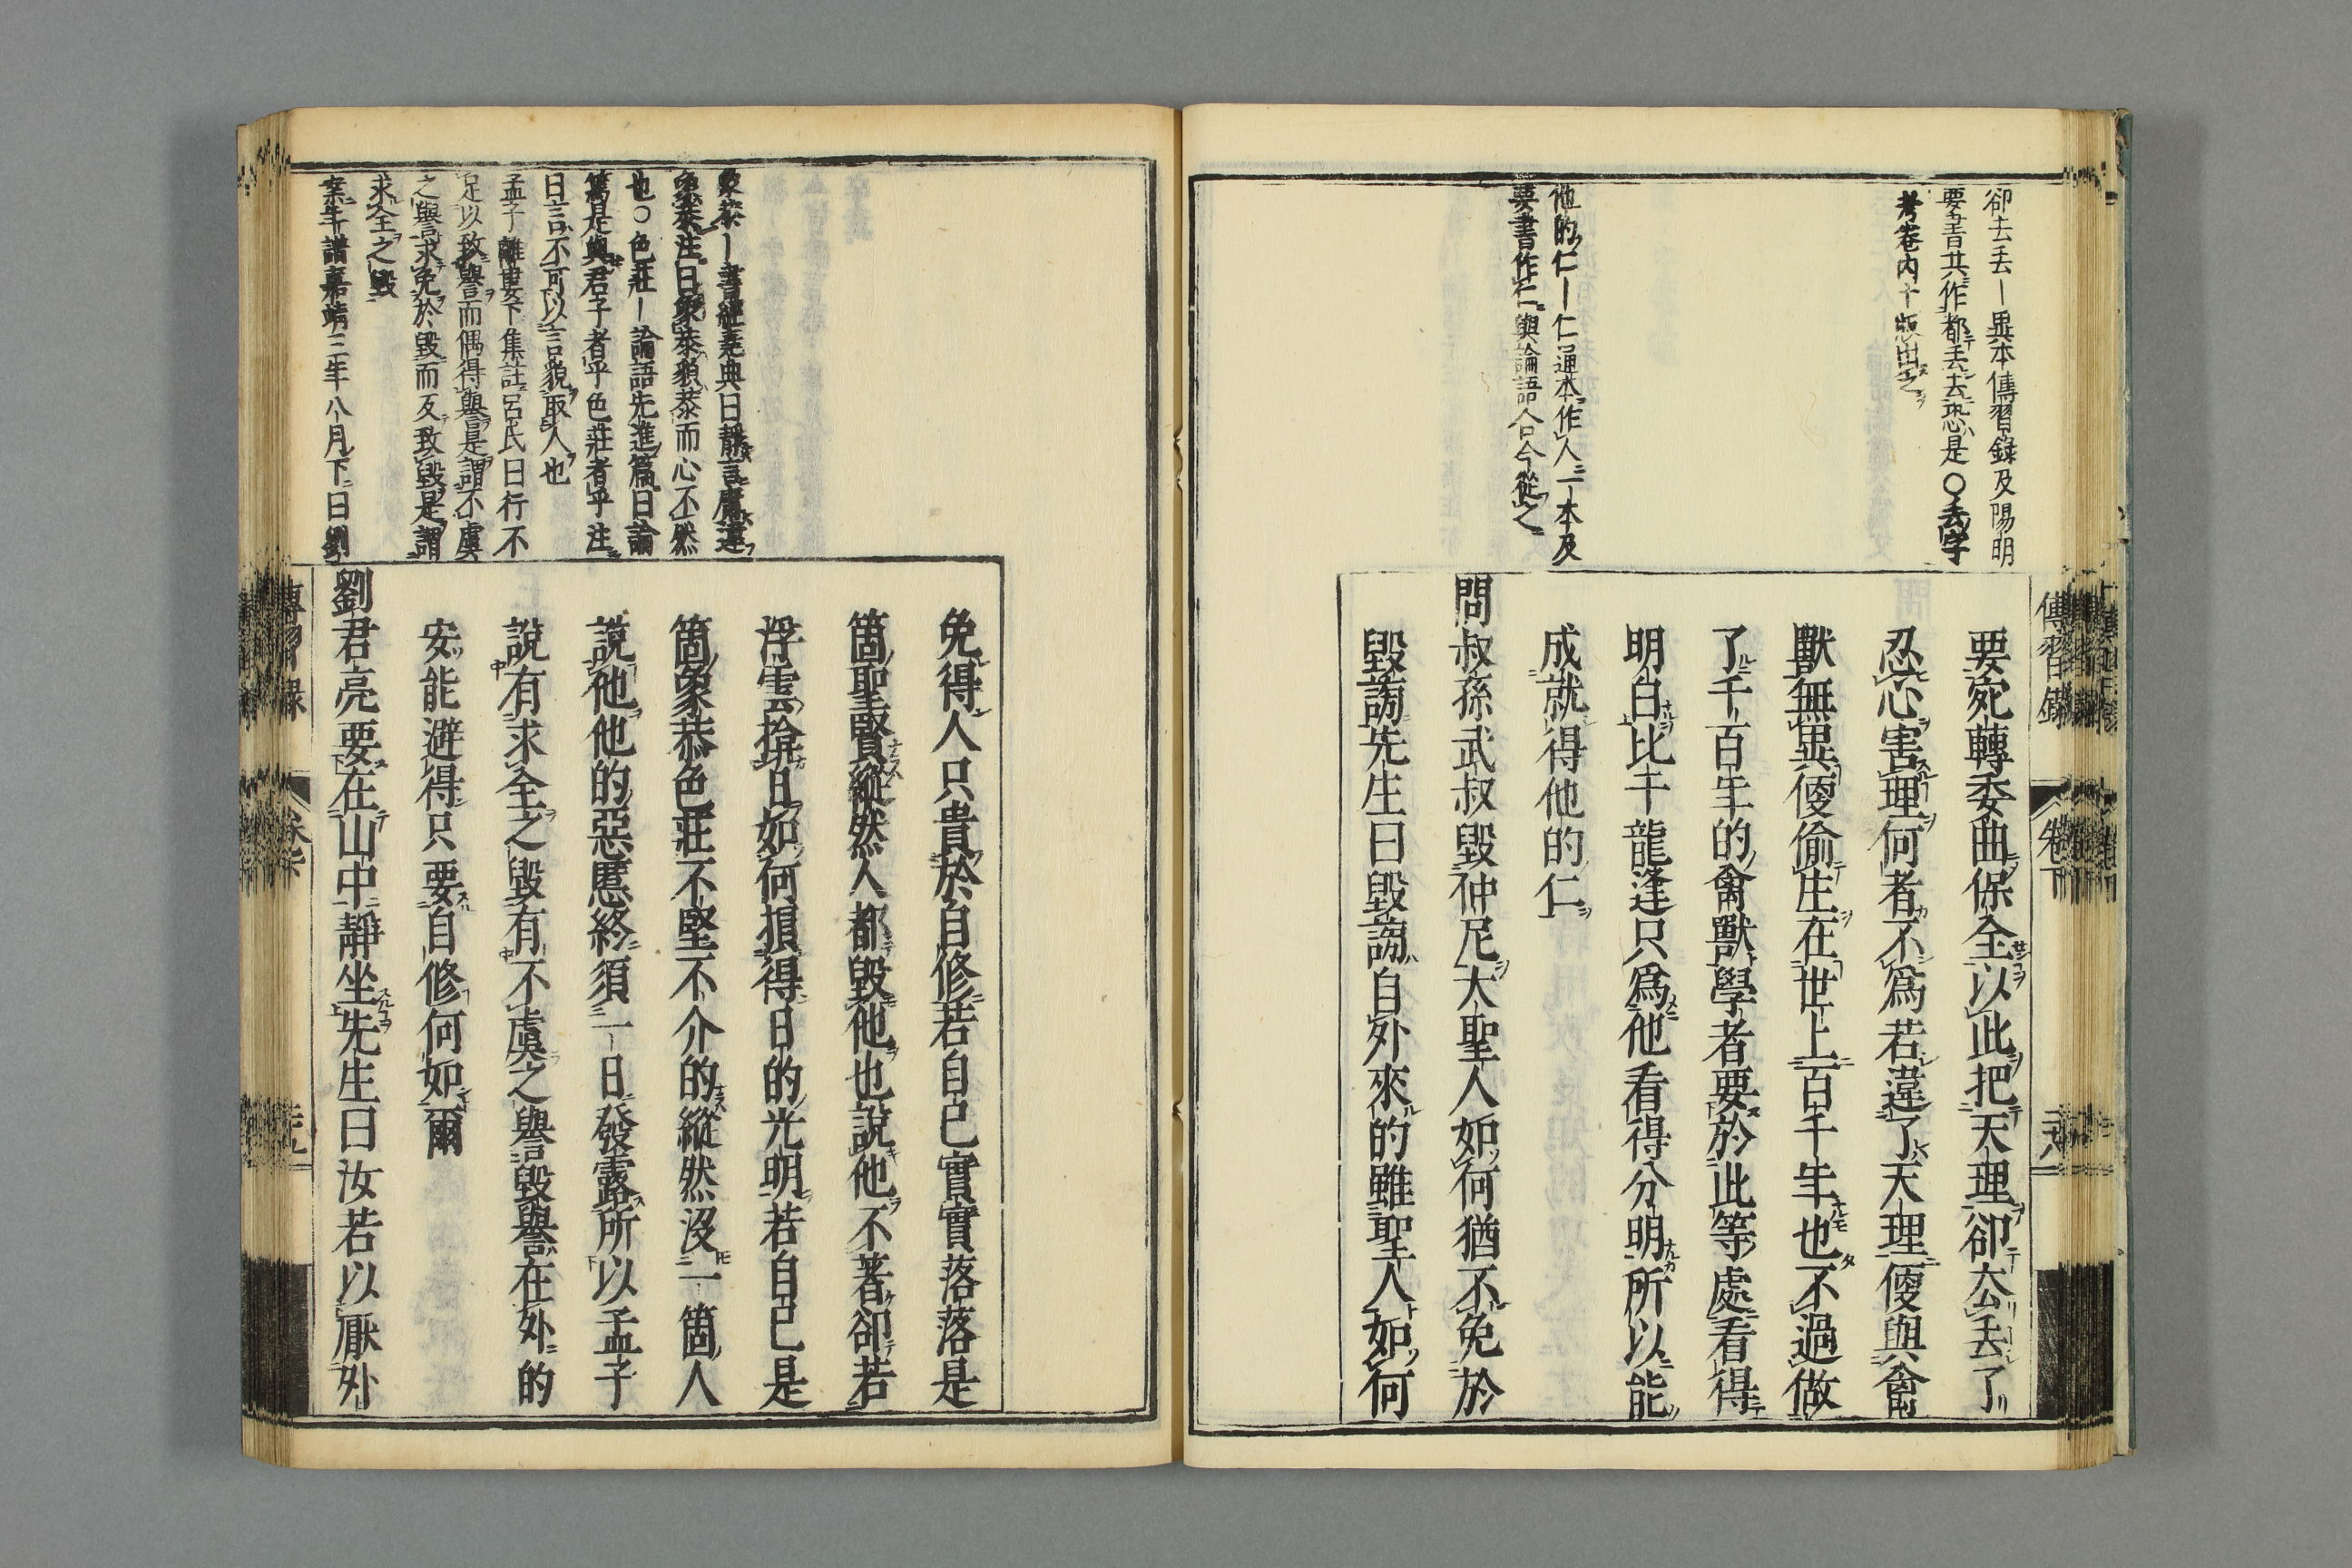 卻去丟ー異本傳習錄及陽明
要書共作都丟去恐是〇丟字
考卷内十版出之
他的仁ー仁通本作人一本及
要書作仁與論語合今從之
要宛轉委曲保全以此把天理卻㕕去了
忍心害理何者不爲若違了天理便與禽
獸無異便偷生在世上百千年也不過做
了千百年的禽獸學者要於此等處看得
明白比干龍逢只爲他看得分明所以能
成就得他的仁
問叔孫武叔毀仲尼大聖人如何猶不免於
毀謗先生曰毀謗自外來的雖聖人如何
傳習錄
卷下
象恭ー書經堯典曰靜言庸違
象恭注曰象恭貌恭而心不然
也〇色莊ー論語先進篇曰論
篤是與君子者乎色莊者乎注
曰言不可以言貌取人也
孟子離婁下集註呂氏曰行不
足以致譽而偶得譽是謂不虞
之譽求免於毀而反致毀是謂
求全之毀
案年譜嘉靖三年八月下曰劉
免得人只貴於自修若自己實實落落是
箇聖賢縱然人都毀他也說他不著卻若
浮雲揜日如何損得日的光明若自己是
箇象恭色莊不堅不介的縱然沒一箇人
說他他的惡慝終須一日發露所以孟子
說有求全之毀有不虞之譽毀譽在外的
安能避得只要自修何如爾
劉君亮要在山中靜坐先生曰汝若以厭外
傳習錄